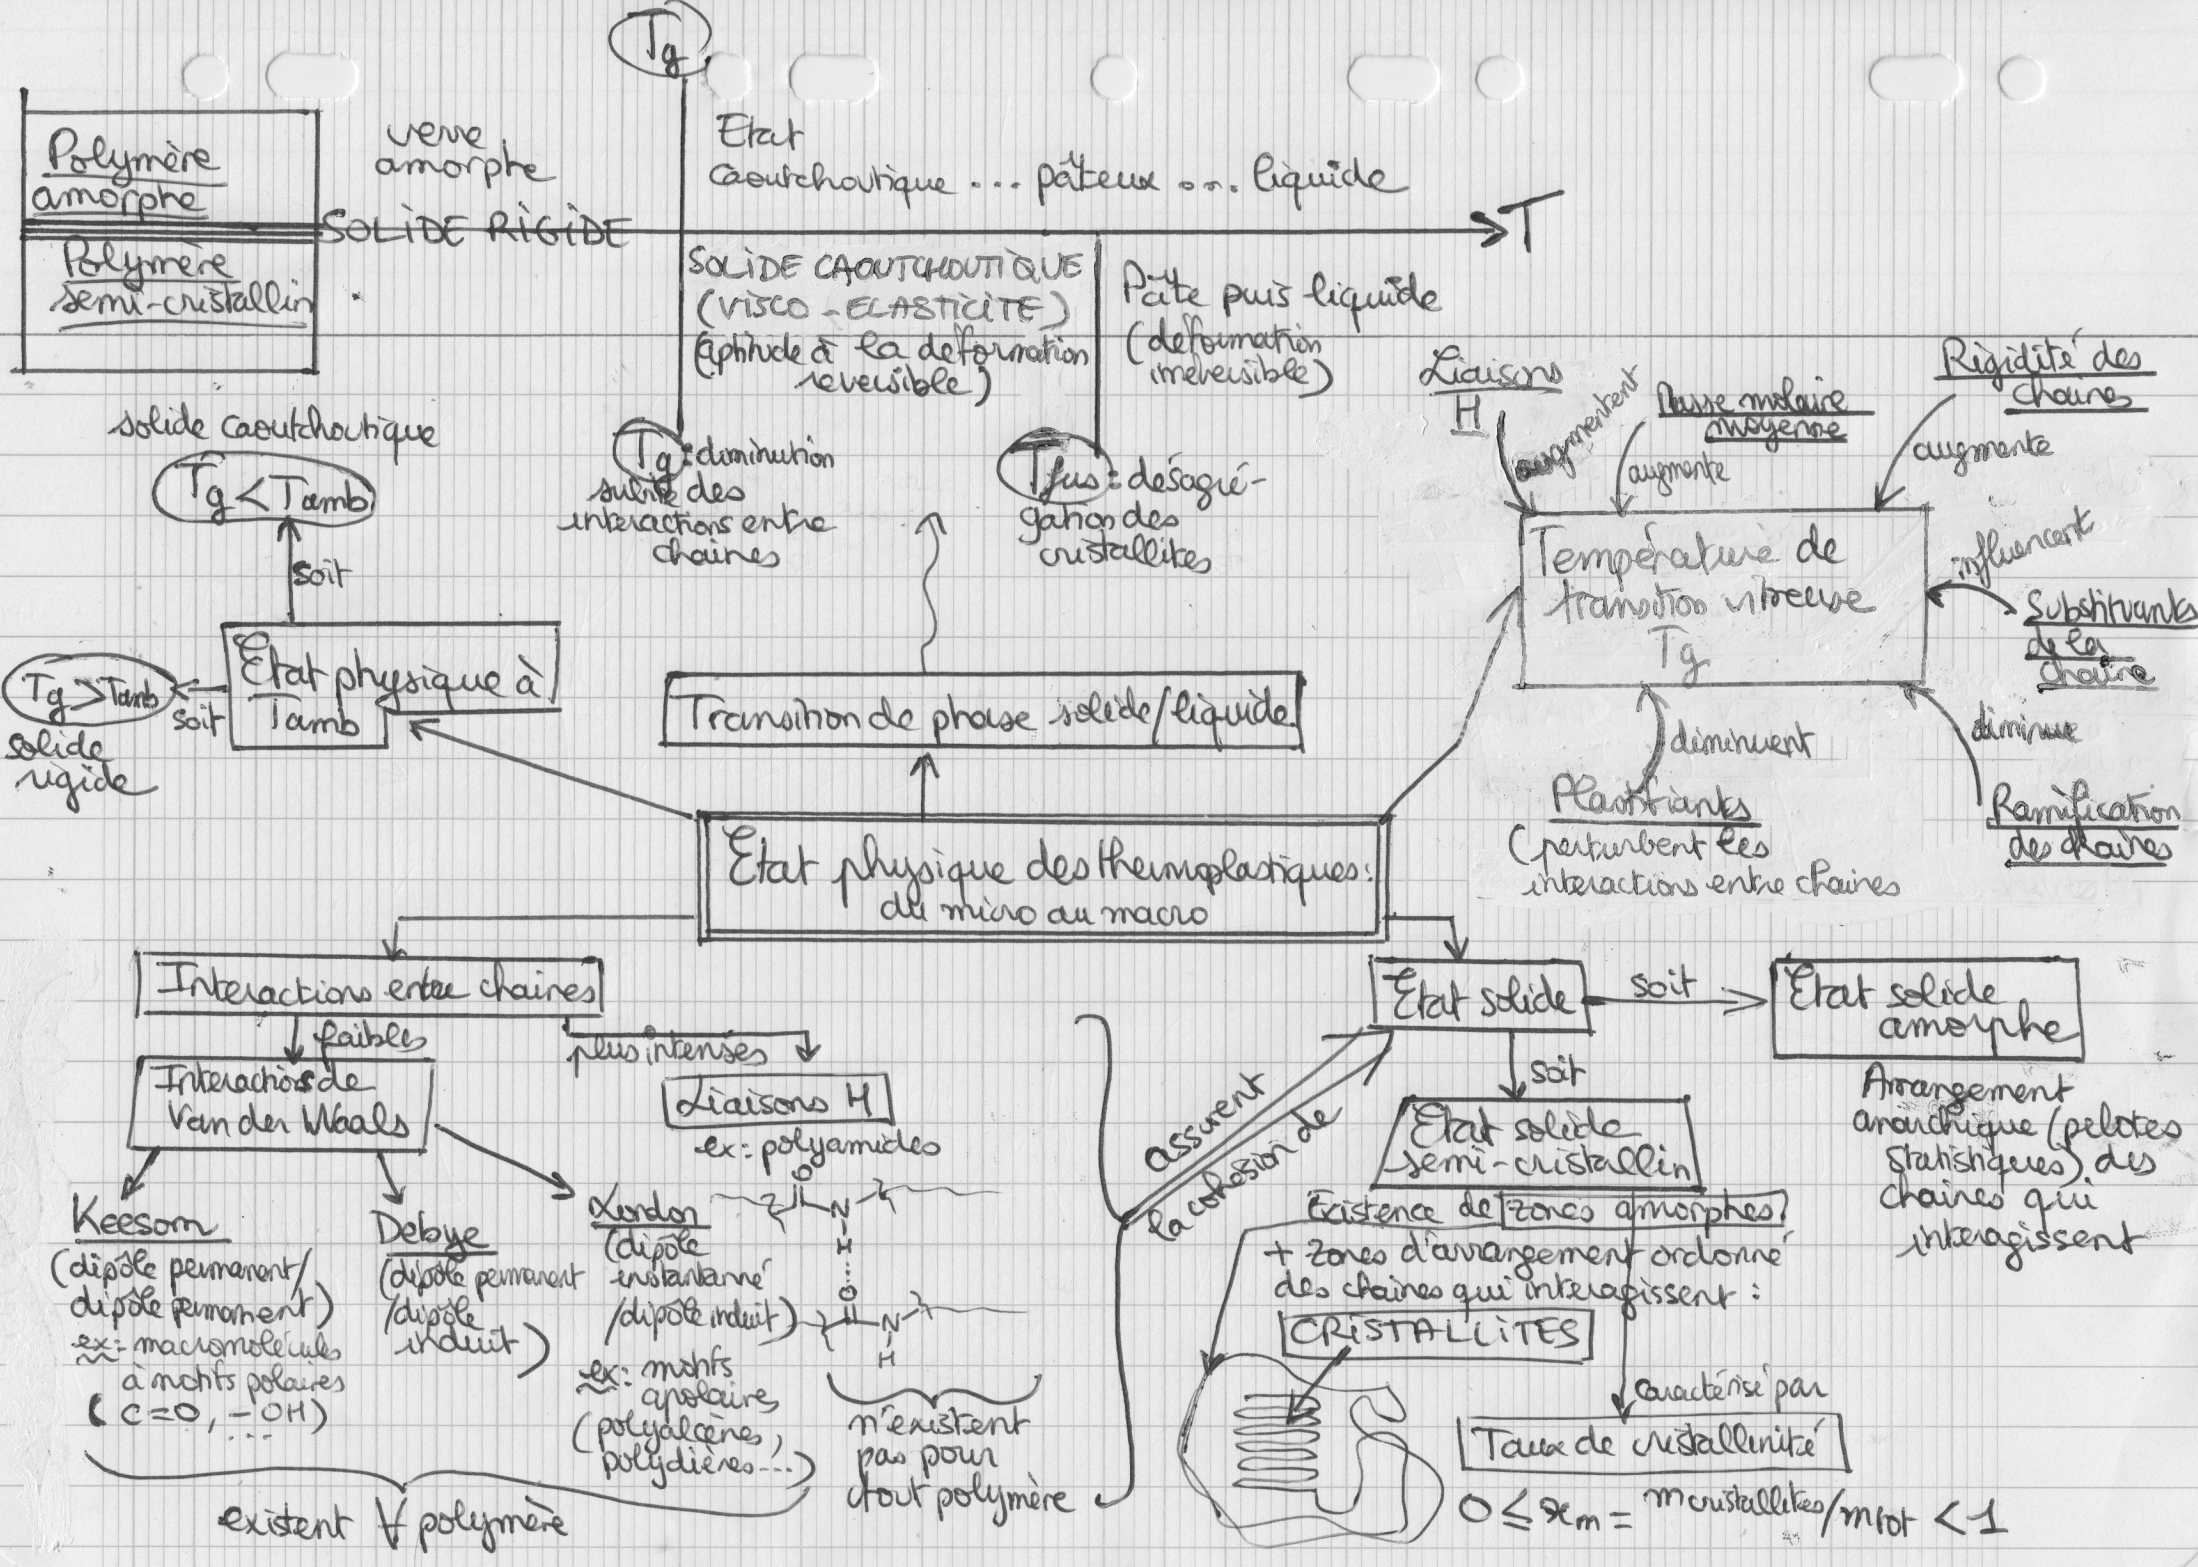 Tg
Polymère
amorphe
verre
amorphe
Etat
caoutchoutique ... pâteux ... liquide
SOLIDE RIGIDE
T
Polymère
semi-cristallin
SOLIDE CAOUTCHOUTIQUE
(VISCO-ELASTICITE)
(aptitude à la déformation
reversible)
Pâte puis liquide
(déformation
irréversible)
Tg : diminution
subite des
interactions entre
chaines
Tfus : désagré-
gation des
cristallites
solide caoutchoutique
Tg < Tamb
soit
Etat physique à
Tamb
soit
Tg > Tamb
solide
rigide
Transition de phase solide/liquide
Liaisons
H
augmentent
Masse molaire
moyenne
augmente
Rigidité des
chaines
augmente
Température de
transition vitreuse
Tg
influencent
Substituants
de la
chaine
diminue
Ramification
des chaines
diminuent
Plastifiants
(perturbent les
interactions entre chaines
Etat physique des thermoplastiques :
du micro au macro
Interactions entre chaines
faibles
plus intenses
Interactions de
Van der Waals
Liaisons H
ex : polyamides
O
N
H
O
N
H
Keesom
(dipôle permanent/
dipôle permanent)
ex : macromolécules
à motifs polaires
(C=O, -OH)
...
Debye
(dipôle permanent
/dipôle
induit)
London
(dipôle
instantanné
/dipôle induit)
ex : motifs
apolaires
(polyalcènes,
polydiènes...)
existent ∀ polymère
n'existent
pas pour
tout polymère
assurent
la cohésion de
Etat solide
soit
Etat solide
amorphe
Arrangement
anarchique (pelotes
statistiques) des
chaines qui
interagissent
soit
Etat solide
semi-cristallin
Existence de zones amorphes
+ zones d'arrangement ordonné
des chaines qui interagissent :
CRISTALLITES
caractérisé par
Taux de cristallinité
0 ≤ xm = mcristallites/mtot < 1